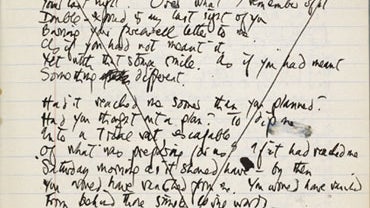 Your last night. Over what I remember of it
Double-exposed is my last sight of you
Burning your farewell letter to me
As if you had not meant it.
Yet with that strange smile. As if you had meant
Something different.
Had it reached me sooner than you planned?
Had you thought out a plan? To me
Into a escapable
of what was preparing for us? If it had reached me
Saturday morning as it should have – by then
You would have vanished from me. You would have vanished
From behind those simple words